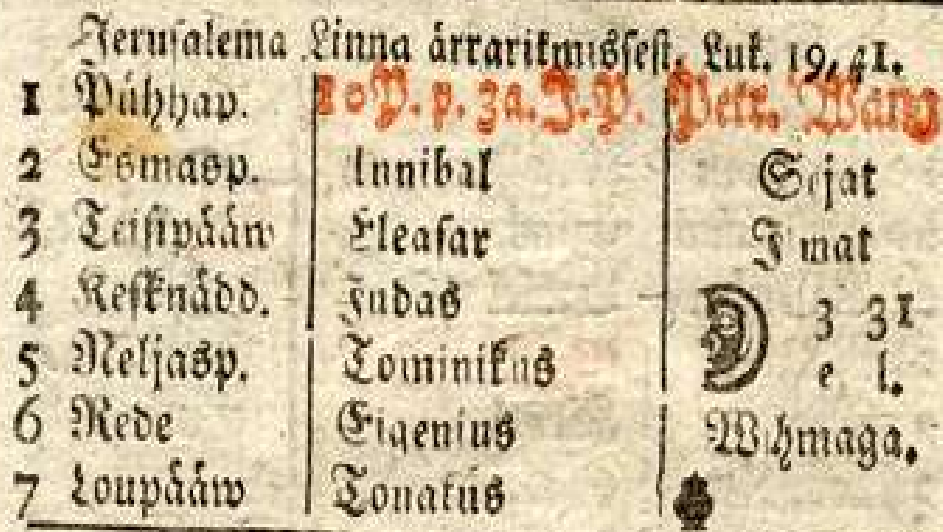 Jerusalema Linna ärrarikmissest. Luk. 19, 41.
1 Pühhap. 10 P. p. 3a. J. P. Petr. Wang
2 Esmasp. Annibal Sajat
3 Teisipääw Eleasar Ilmat
4 Kesknädd. Judas 3 31
5 Neljasp. Tominikus e l.
6 Rede Eigenius
7 Loupääw Tonatus